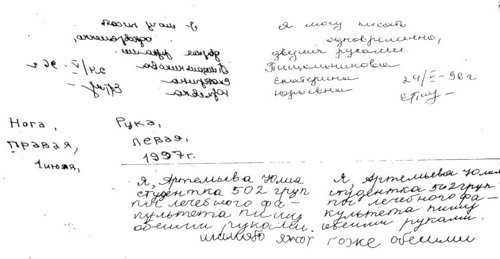 Я могу писать
одновременно,
двумя руками
екатерина
Юрьевна
Я могу писать
одновременно,
двумя руками
екатерина
Юрьевна
24/V-96г
Нога,
правая,
1 июля,
Рука,
левая,
1997г.
Я, Артемьева Юлия
студентка 502 груп
пы лечебного фа-
культета пишу
обеими руками.
Я, Артемьева Юлия
студентка 502 груп
пы лечебного фа-
культета пишу
обеими руками.
тоже обеими